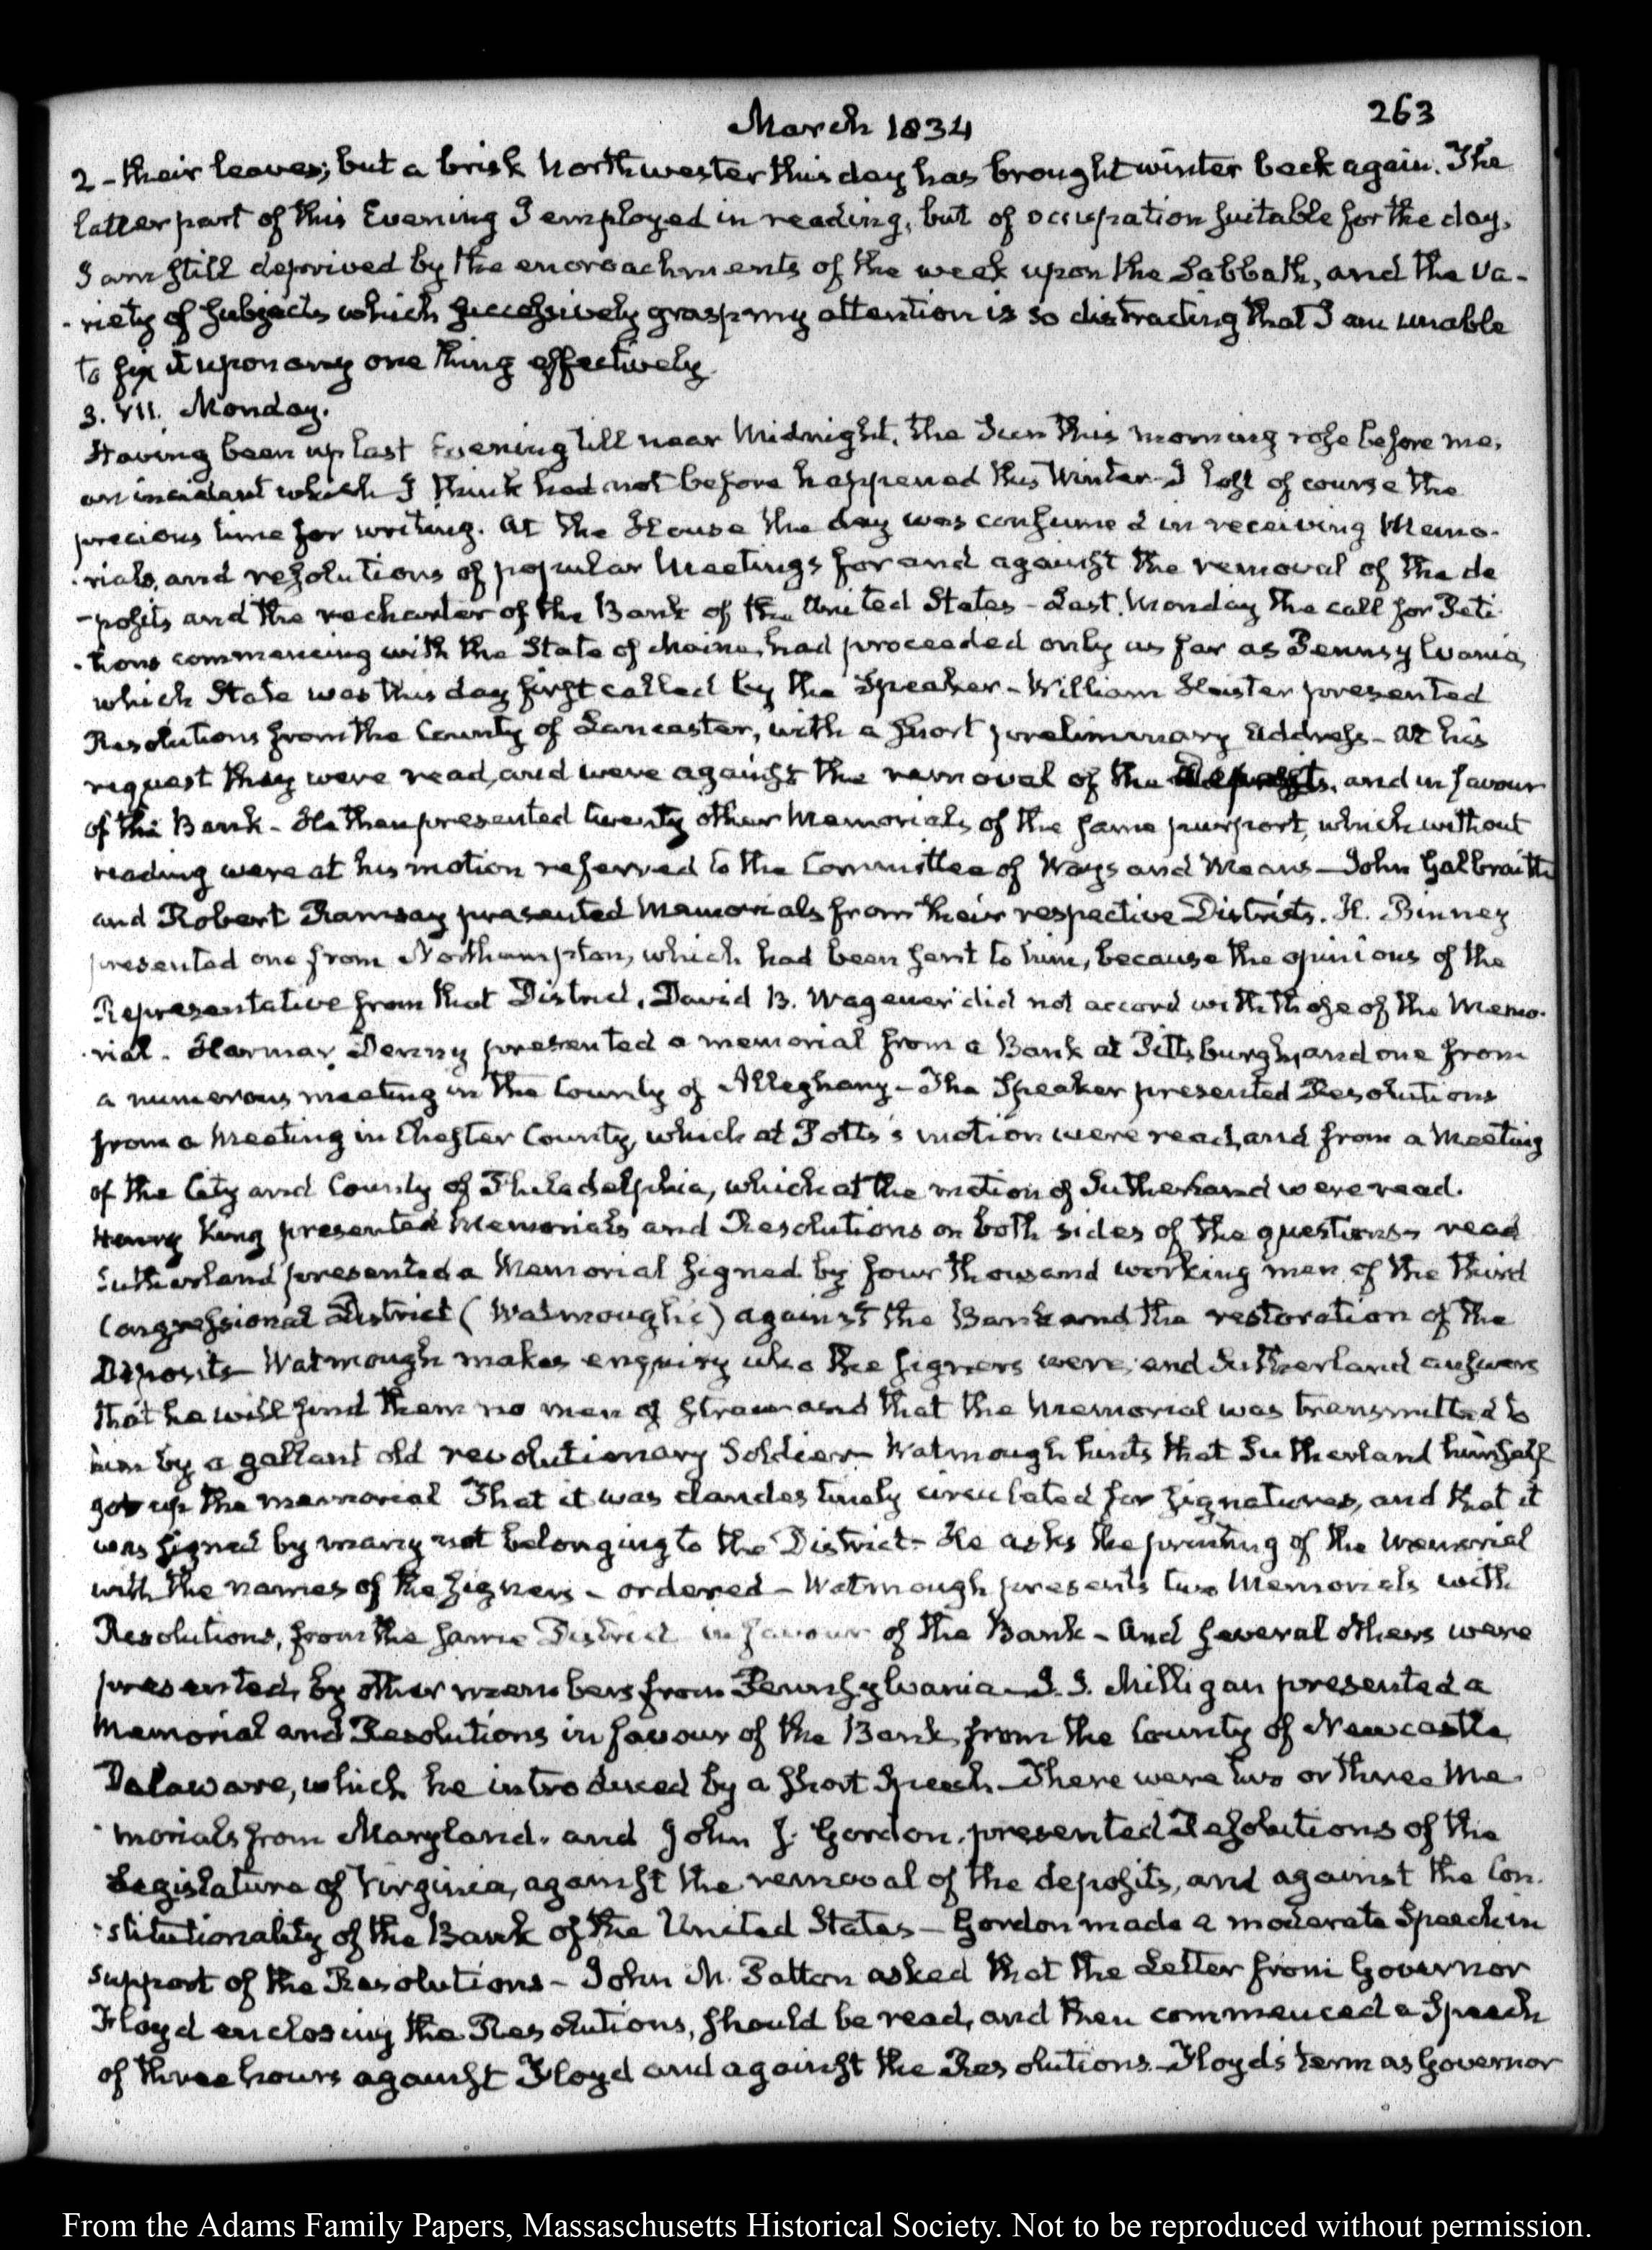 March 1834
263
2 - their leaves; but a brisk Northwester this day has brought winter back again. The
latter part of this Evening I employed in reading, but of occupation suitable for the day,
I am still deprived by the encroachments of the week upon the Sabbath, and the va-
-riety of subjects which successively grasp my attention is so distracting that I am unable
to fix it upon any one thing effectively
3. VII. Monday.
Having been up last Evening till near Midnight, the Sun this morning rose before me,
an incident which I think had not before happened this Winter - I lost of course the
precious time for writing. At the House the day was consumed in receiving Memo-
-rials, and resolutions of popular Meetings for and against the removal of the de
-posits and the recharter of the Bank of the United States - Last Monday the call for Peti
-tions commencing with the State of Maine, had proceeded only as far as Pennsylvania,
which State was this day first called by the Speaker - William Hiester presented
Resolutions from the County of Lancaster, with a short preliminary address - at his
request they were read, and were against the removal of the Deposits, and in favour
of the Bank - He then presented twenty other Memorials of the same purport, which without
reading were at his motion referred to the Committee of Ways and Means - John Galbraith
and Robert Ramsay presented Memorials from their respective Districts. H. Binney
presented one from Northampton, which had been sent to him, because the opinions of the
Representative from that District, David B. Wagener did not accord with those of the Memo-
-rial. Harmar Denny presented a memorial from a Bank at Pittsburgh, and one from
a numerous meeting in the County of Alleghany - The Speaker presented Resolutions
from a Meeting in Chester County, which at Potts's motion were read, and from a Meeting
of the City and County of Philadelphia, which at the motion of Sutherland were read.
Henry King presented Memorials and Resolutions on both sides of the questions - read
Sutherland presented a Memorial signed by four thousand working men of the third
Congressional District (Watmough's) against the Bank and the restoration of the
Deposits - Watmough makes enquiry who the signers were; and Sutherland answers
that he will find them no men of straw and that the Memorial was transmitted to
him by a gallant old revolutionary Soldier - Watmough hints that Sutherland himself
got up the memorial That it was clandestinely circulated for signatures, and that it
was signed by many not belonging to the District - He asks the printing of the Memorial
with the names of the signers - ordered - Watmough presents two Memorials with
Resolutions, from the same District in favour of the Bank - And several others were
presented, by other members from Pennsylvania - J. J. Milligan presented a
Memorial and Resolutions in favour of the Bank, from the County of Newcastle
Delaware, which he introduced by a short Speech - There were two or three Me-
-morials from Maryland, and John F. Gordon, presented Resolutions of the
Legislature of Virginia, against the removal of the deposits, and against the Con-
-stitutionality of the Bank of the United States - Gordon made a moderate Speech in
support of the Resolutions - John M. Patton asked that the Letter from Governor
Floyd enclosing the Resolutions, should be read, and then commenced a Speech
of three hours against Floyd and against the Resolutions - Floyd's term as Governor
From the Adams Family Papers, Massachusetts Historical Society. Not to be reproduced without permission.